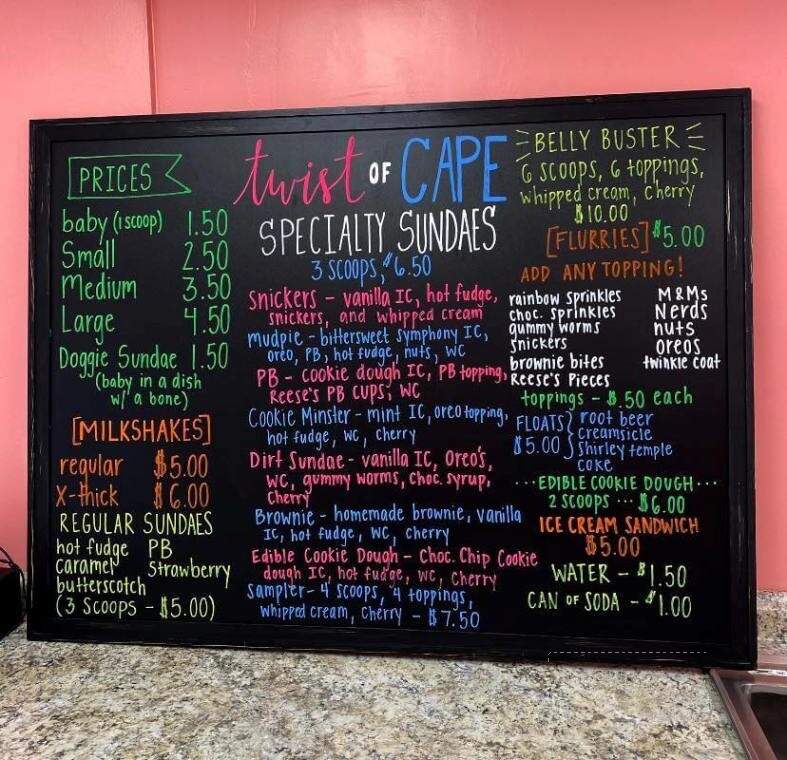 PRICES
baby (1 scoop) 1.50
Small 2.50
Medium 3.50
Large 4.50
Doggie Sundae 1.50
(baby in a dish
w/ a bone)
[MILKSHAKES]
regular $5.00
X-thick $6.00
REGULAR SUNDAES
hot fudge PB
caramel Strawberry
butterscotch
(3 SCOOPS - $5.00)
twist OF CAPE
SPECIALTY SUNDAES
3 SCOOPS, $6.50
Snickers - vanilla IC, hot fudge,
snickers, and whipped cream
mudpie - bittersweet symphony IC,
oreo, PB, hot fudge, nuts, WC
PB - cookie dough IC, PB topping,
Reese's PB cups, WC
Cookie Minster - mint IC, oreo topping,
hot fudge, WC, cherry
Dirt Sundae - vanilla IC, Oreo's,
WC, gummy worms, choc. syrup,
cherry
Brownie - homemade brownie, vanilla
IC, hot fudge, WC, cherry
Edible Cookie Dough - Choc. Chip Cookie
dough IC, hot fudge, WC, cherry
Sampler - 4 scoops, 4 toppings,
whipped cream, cherry - $7.50
BELLY BUSTER
6 SCOOPS, 6 toppings,
whipped cream, cherry
$10.00
[FLURRIES] $5.00
ADD ANY TOPPING!
rainbow sprinkles M&Ms
choc. sprinkles Nerds
gummy worms nuts
snickers oreos
brownie bites twinkle coat
Reese's Pieces
toppings - $.50 each
FLOATS } root beer
$5.00 creamsicle
shirley temple
coke
...EDIBLE COOKIE DOUGH...
2 SCOOPS ... $6.00
ICE CREAM SANDWICH
$5.00
WATER - $1.50
CAN OF SODA - $1.00